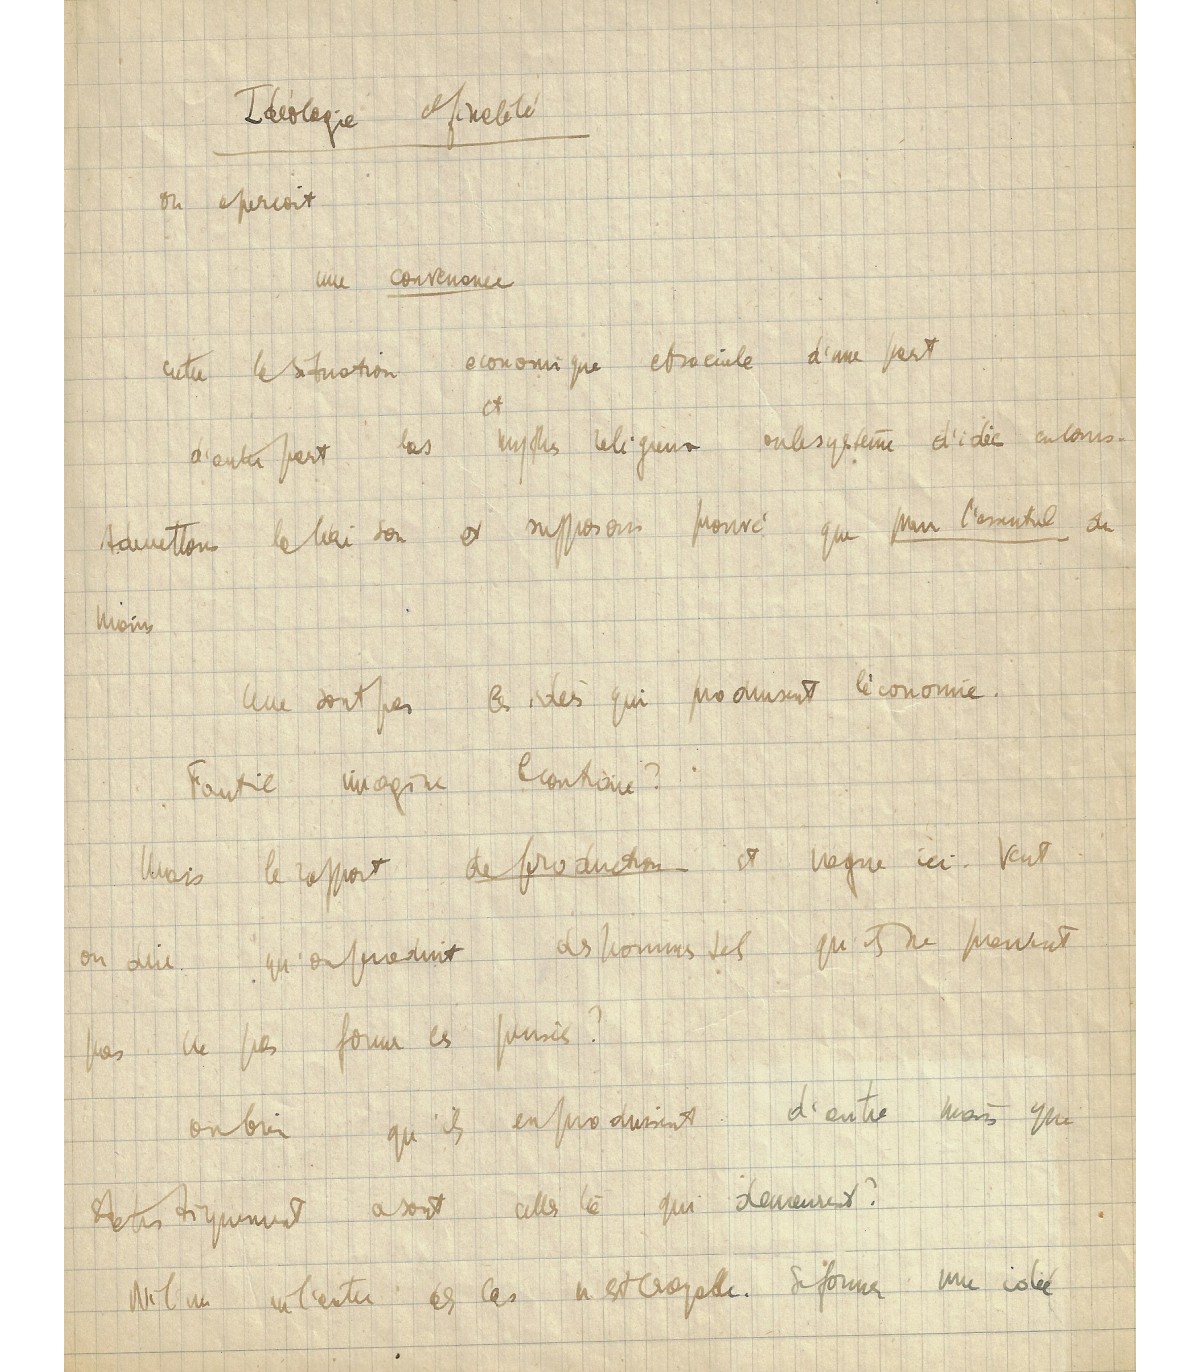 Idéologie et finalité
on aperçoit
une convenance
entre la situation économique et sociale d'une part
et
d'autre part les mythes religieux ou le système d'idée en cours.
Admettons la liaison et supposons prouvé que pour l'essentiel du
moins
Ce ne sont pas les idées qui produisent l'économie.
Faut il imaginer le contraire?
Mais le rapport de production est vague ici. Veut
on dire qu'on produit des hommes tels qu'ils ne peuvent
pas ne pas former ces pensées?
ou bien qu'ils en produisent d'autre mais que
statistiquement ce sont celles là qui demeurent?
Ni l'un ni l'autre de ces cas n'est croyable. Si former une idée